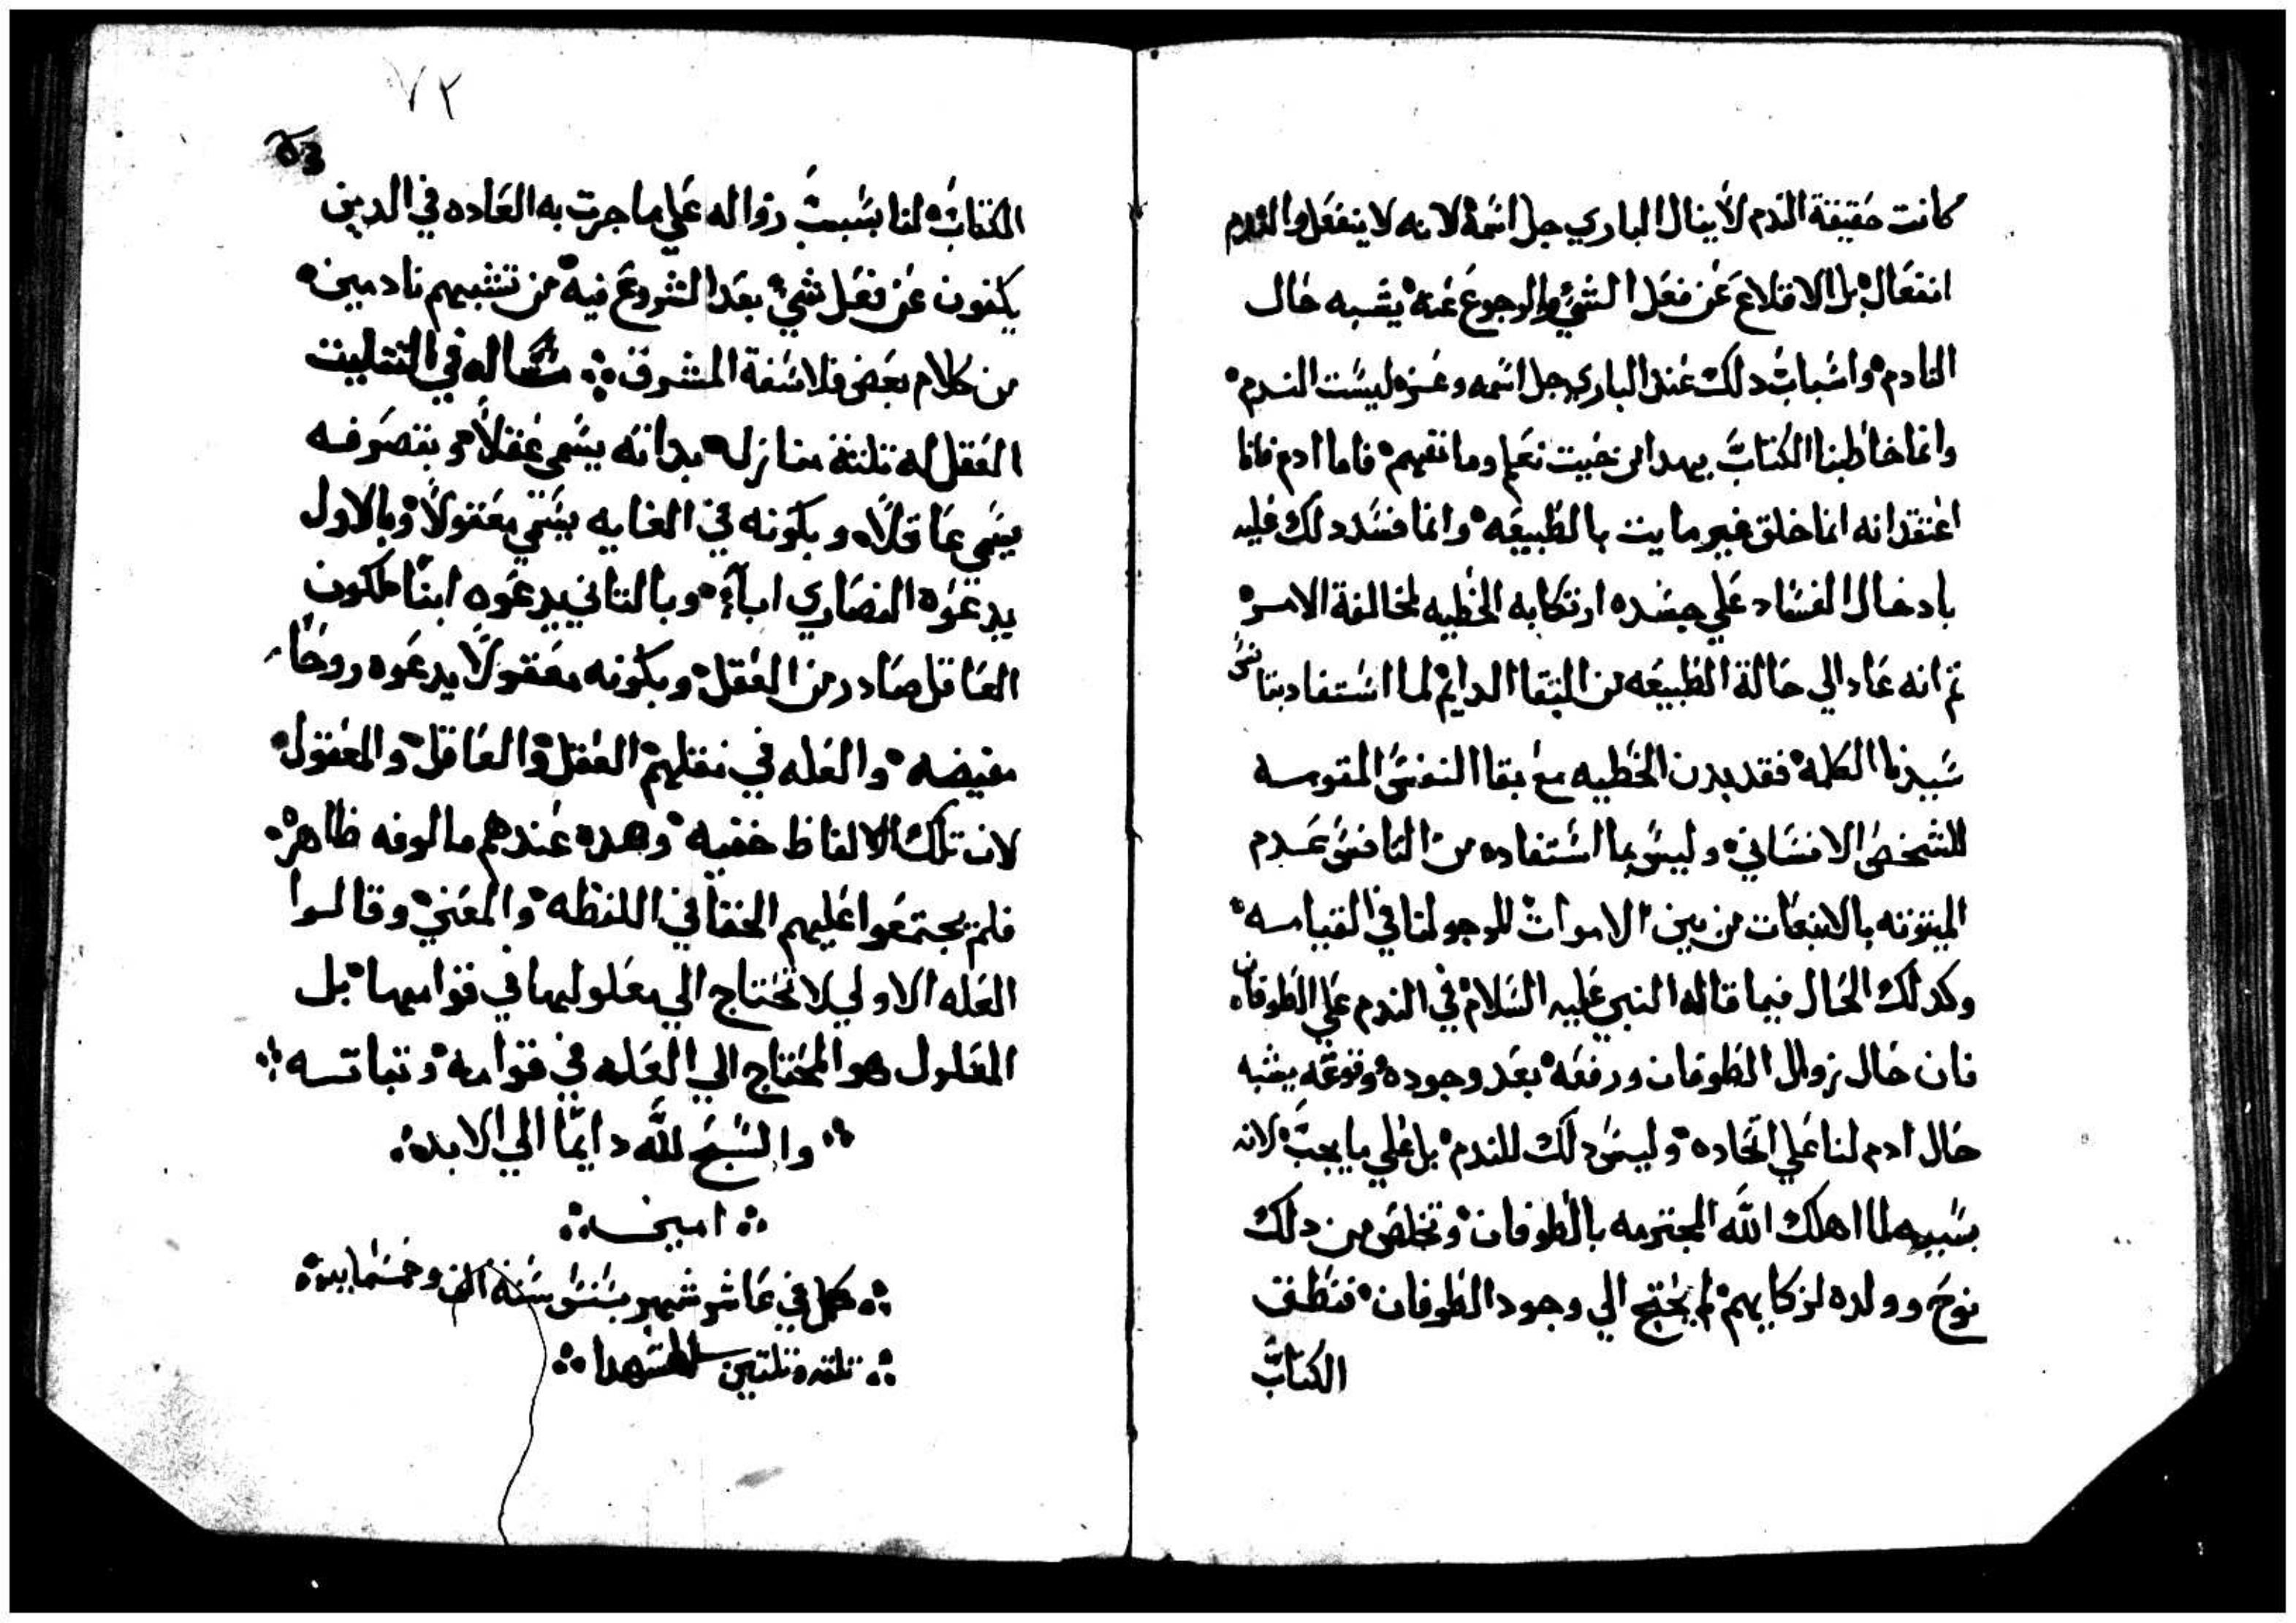 كانت حقيقة الندم لا ينال الباري جل اسمه لانه لا ينفعل والندم
انفعال بل الاقلاع عن فعل الشي والرجوع عنه يشبه حال
النادم واسباب دلك عند الباري جل اسمه وعزه ليست الندم
وانما خاطبنا الكتاب بهدا من حيت نعلم وما نفهم فاما ادم فانا
اعتقد انه انما خلق غير مايت بالطبيعه وانما فسد دلك عليه
بادخال الفساد على جسده ارتكابه الخطيه لمخالفة الامر
تم انه عاد الي حالة الطبيعه من البقا الدايم لما استفاد بتانس
سيدنا الكلمه فقد بدن الخطيه مع بقا النفس المقومه
للشخص الانساني وليس بما استفاده من التانس عدم
الميتوته بالانبعات من بين الاموات للوجو لنا في القيامه
وكدلك الحال فيما قاله النبي عليه السلام في الندم علي الطوفان
فان حال زوال الطوفان ورفعه بعد وجوده وقوعه يشبه
حال ادم لنا علي اتحاده وليس دلك للندم بل علي ما يجب لانه
بسببه لما اهلك الله المجترمه بالطوفان وتخلص من دلك
نوح وولده لزكايهم لم يحتج الي وجود الطوفان فنطق
الكتاب
٧٢
الكتاب لنا بسبب زواله علي ما جرت به العاده في الدين
يكفون عن فعل شي بعد الشروع فيه من تشبيهم نادمين
من كلام بعض فلاسفة المشرق متاله في التتليت
العقل له تلتة منازل بداته يسمي عقلاً وبتصرفه
يسمي عاقلاً وبكونه في الغايه يسمي معقولاً وبالاول
يدعوه النصاري اباً وبالتاني يدعوه ابناً لكون
العاقل صادر من العقل وبكونه معقولاً يدعوه روحاً
مفيضه والعله في نقلهم العقل والعاقل والمعقول
لان تلك الالفاظ خفيه وهده عندهم مالوفه ظاهره
فلم يجتمعوا عليهم الخفا في اللفظه والمعني وقالوا
العله الاولي لا تحتاج الي معلوليها في قواميها بل
المعلول هو المحتاج الي العله في قوامه وتباته
والسبح لله دايمًا الي الابد
امين
كمل في عاشر شهر بشنس سنة الف وخمسمايه
تلته وتلتين للشهدا